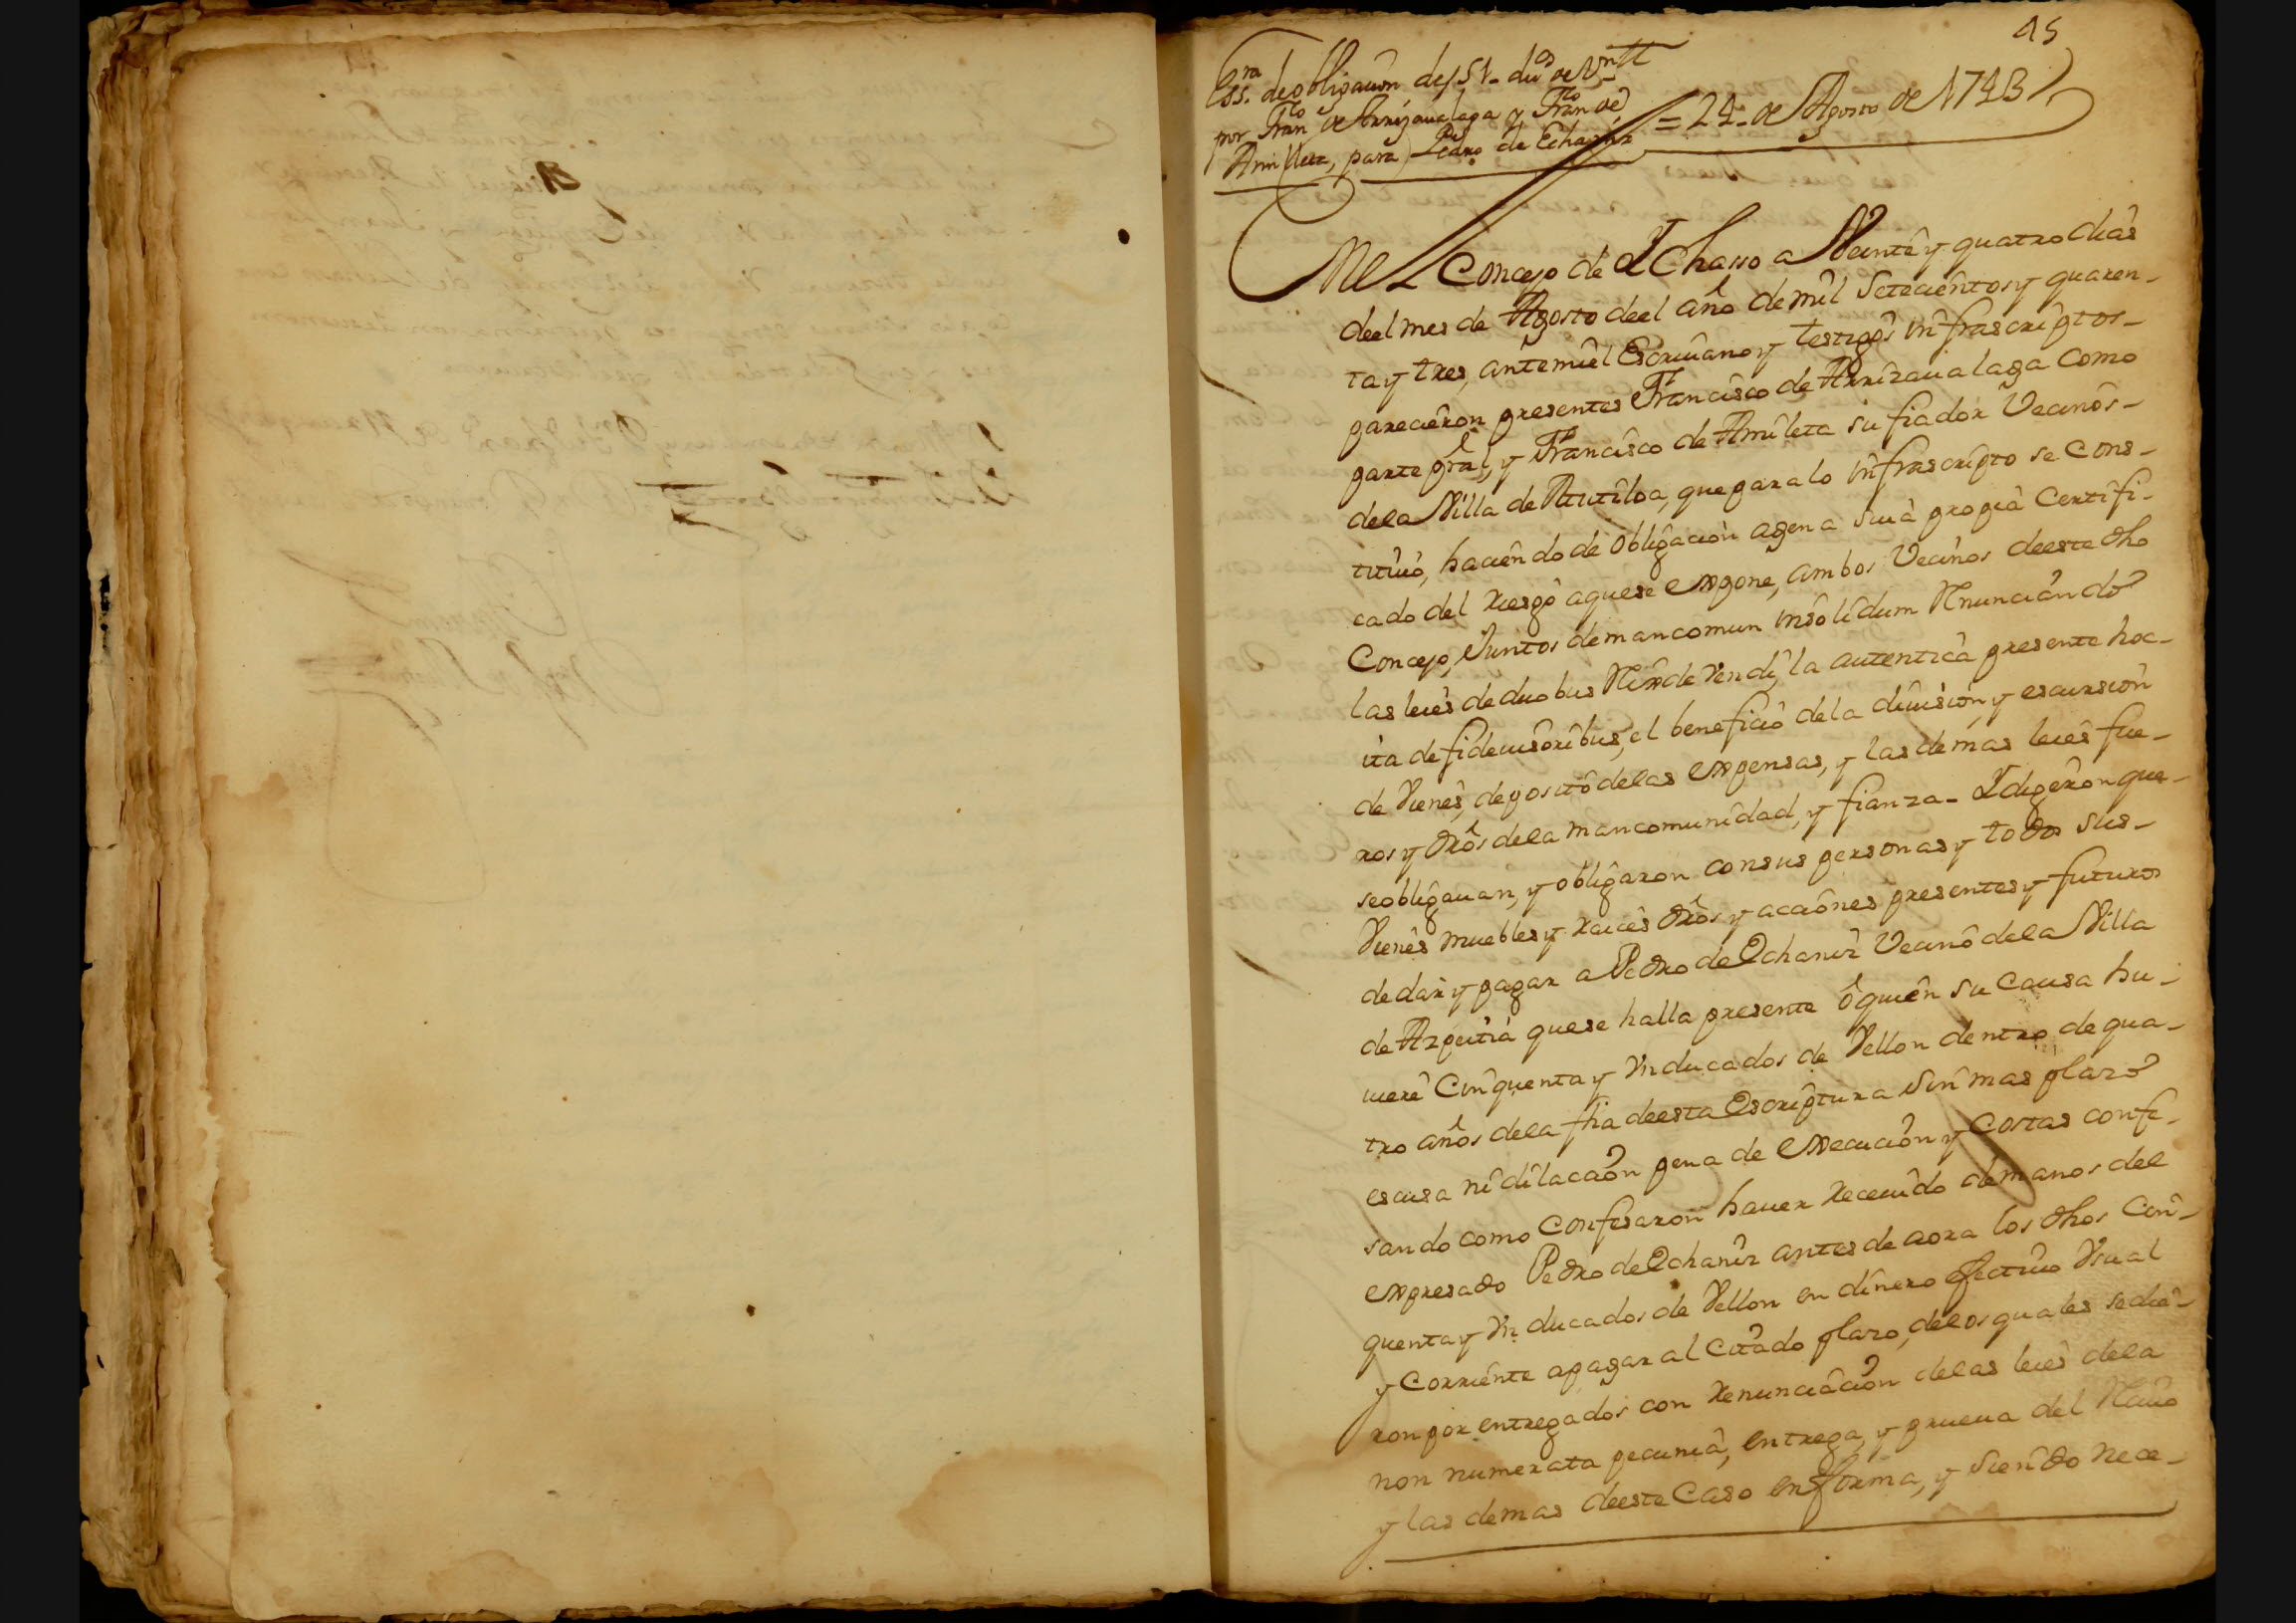 45
Ess.ra de obligacion de 51. du.os de V.on
por Fran.co de Arrizaualaga y Fran.co de
Amilleta, para Pedro de Echaniz = 24. de Agosto de 1743
En el Concejo de YChasso a Veinte y quatro dias
deel mes de Agosto deel año de mil Setecientos y quaren-
ta y tres, ante mi el Escriuano y testigos infrascriptos-
parecieron presentes Francisco de Arrizaualaga como
parte prâl, y Francisco de Amileta su fiador Vecinos-
de la Villa de, que para lo infrascripto se cons-
tituió, haciendo de obligacion agena suia propia Certifi-
cado del riesgo aquese expone, ambos Vecinos deeste dho
Concejo, Juntos demancomun insolidum Renunciando
las leies de duobus Rex de vendi, la autentica presente hoc-
ita de fideiusoribus, el beneficio dela diuision, y escursion
de Vienes, deposito delas expensas, y las demas leies fue-
ros y dros dela mancomunidad, y fianza- Y digeron que-
se obligauan, y obligaron con sus personas y todos sus-
Vienes muebles y raices dros y acciones presentes y futuros
de dar y pagar a Pedro de Echaniz Vecino dela Villa
de Azpeitia que se halla presente ô quien su Causa hu-
uiere Cinquenta y un ducados de Vellon dentro de qua-
tro años dela fha deesta Escriptura Sin mas plazo
escusa ni dilacaon pena de execucion y Costas confe-
sando como Confesaron hauer receuido de manos del
expresado Pedro de Echaniz antes de aora los dhos Cin-
quenta y un ducados de Vellon en dinero efectiuo Usual
y Corriente a pagar al Citado plazo, delos quales se die-
ron por entregados con renunciacion delas leies dela
non numerata pecunia, entrega, y prueua del Reciuo
y las demas deeste Caso en forma, y siendo nece-